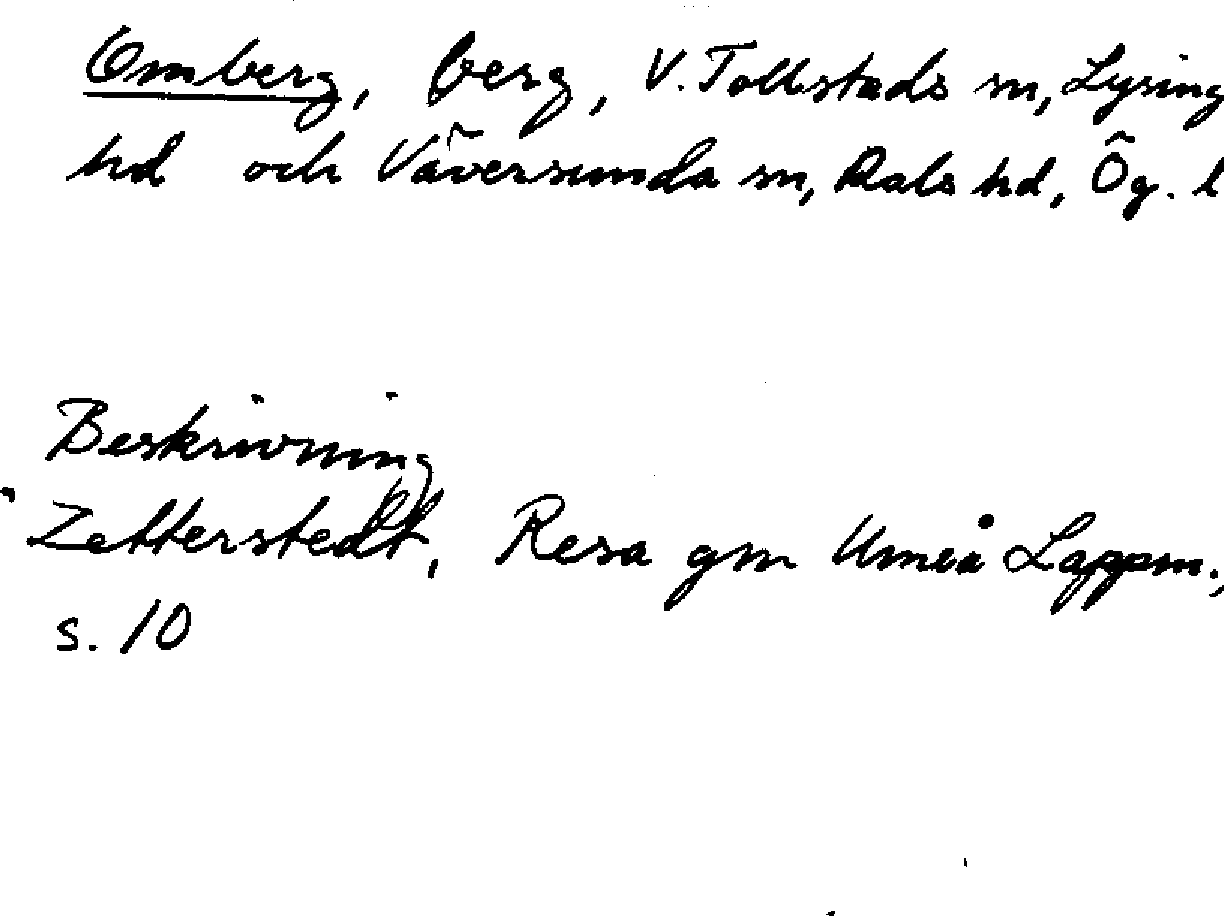 Omberg, berg, V. Tollstads sn, Lysing
hd och Väversunda sn, Dals hd, Ög. l
Beskrivning
Zetterstedt, Resa gm Umeå Lappm.,
s. 10